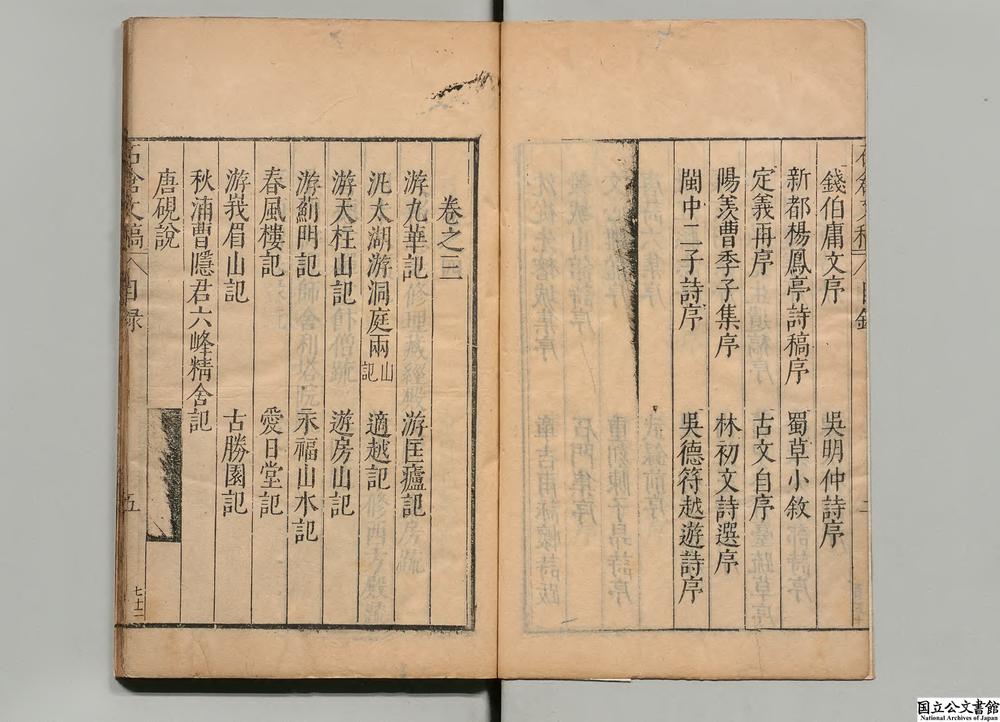 錢伯庸文序 吳明仲詩序
新都楊鳳亭詩稿序 蜀草小敘
定義再序 古文自序
陽羨曹季子集序 林初文詩選序
閩中二子詩序 吳德符越遊詩序
卷之三
游九華記 游匡廬記
泛太湖游洞庭兩山記 適越記
游天柱山記 遊房山記
游薊門記 永福山水記
春風樓記 愛日堂記
游峩眉山記 古勝園記
秋浦曹隱君六峰精舍記
唐硯說
石倉文稿 目録 五
七十二
国立公文書館
National Archives of Japan